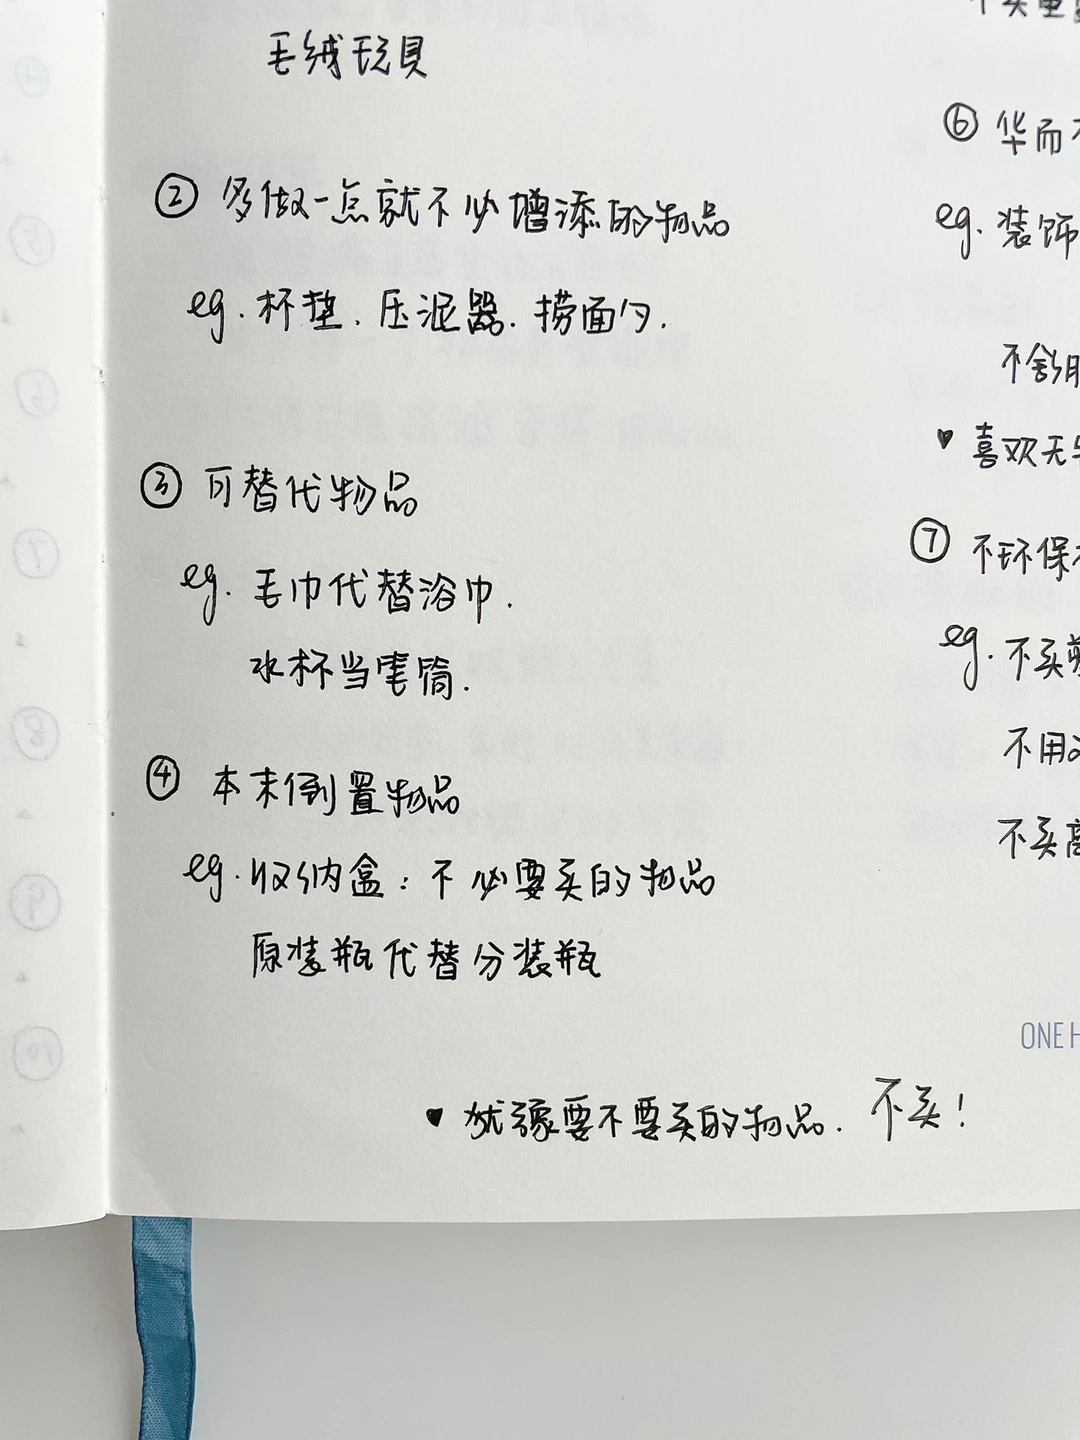 毛绒玩具
② 多做一点就不必增添的物品
eg. 杯垫、压泥器、捞面勺.
③ 可替代物品
eg. 毛巾代替浴巾.
水杯当笔筒.
④ 本末倒置物品
eg. 收纳盒：不必要买的物品
原装瓶代替分装瓶
♥ 犹豫要不要买的物品. 不买！
不买重
⑥ 华而不
eg. 装饰
不舒服
♥ 喜欢无
⑦ 不环保
eg. 不买
不用
不买
ONE H